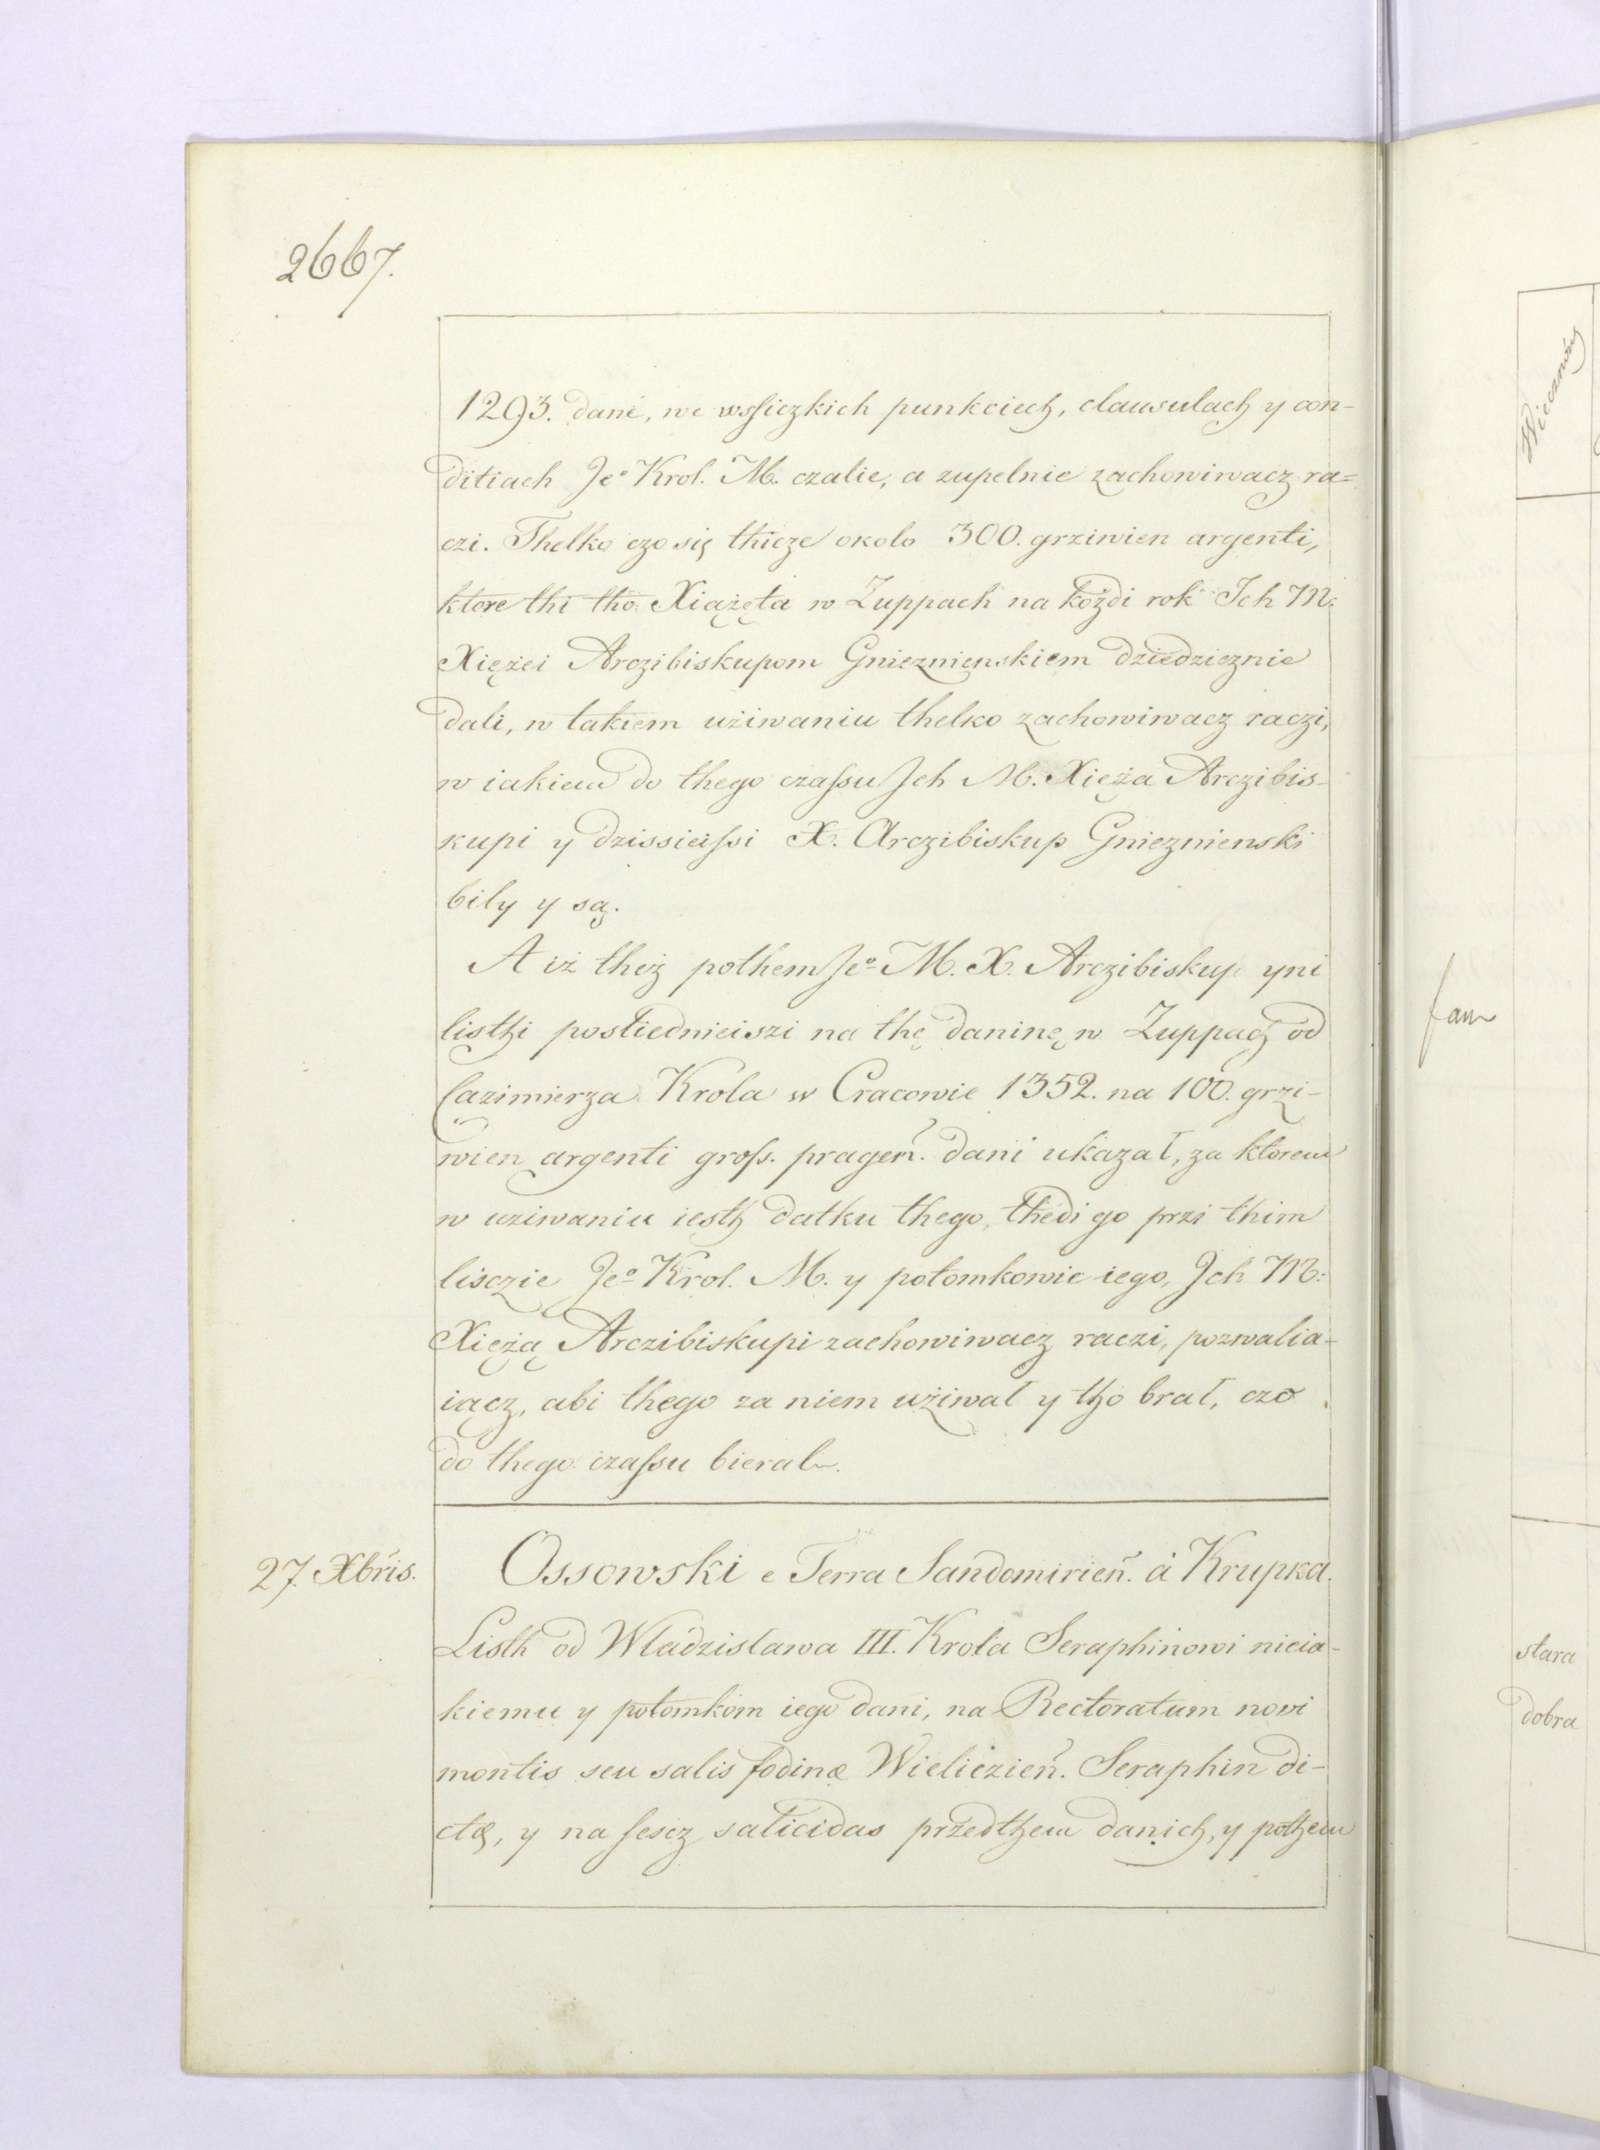 2667.
1293. dane, we wssiczkich punkciech, clausulach y con-
ditiach Jeº Krol. M. czalie, a zupelnie zachowiwacz ra=
czi. Thelko czo się thicze około 300. grziwien argenti,
ktore thi tho. Xiążęta w Zuppach na kożdi rok Ich M:
Xiężei Arczibiskupom Gnieznienskiem dziedzicznie
dali, w takiem użiwaniu thelko zachowiwacz raczi,
w iakiem do thego czassu Jch M. Xięża Arczibis-
kupi y dzissieissi X. Arczibiskup Gnieznienski
bily y są.
A iż theż pothem Jeº M. X. Arczibiskup yni
listhi postiednieiszi na thę daninę w Zuppach od
Cazimierza Krola w Cracowie 1352. na 100. grzi-
wien argenti gross. pragen̄. dani ukazał, za ktorem
w uziwaniu iesth datku thego, thedi go przi thim
lisczie Jeº Krol. M. y potomkowie iego, Jch M:
Xiężą Arczibiskupi zachowiwacz raczi, pozwalia-
iącz, abi thego za niem użiwał y tho brał, czo
do thego czassu bierał.
27. Xbris.
Ossowski e Terra Sandomirien̄. à Krupka.
Listh od Wladzislawa III. Krola Seraphinowi nieia-
kiemu y potomkom iego dani, na Rectoratum novi
montis seu salis fodinæ Wieliczien̄. Seraphin di-
ctæ, y na sescz salicidas przedthem danich, y pothem
Wieczność
fam
stara
dobra